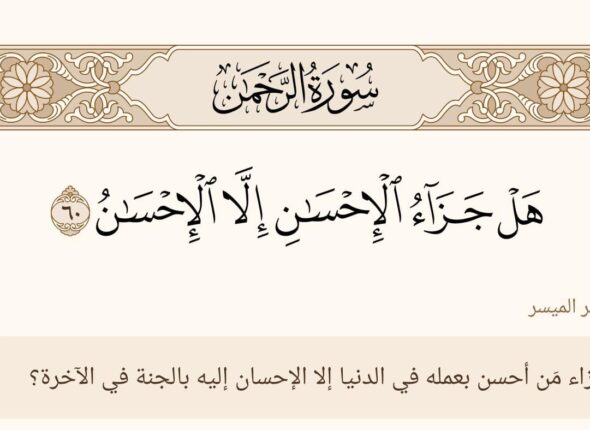 سُورَةُ الرَّحْمَٰن
هَلْ جَزَآءُ ٱلْإِحْسَٰنِ إِلَّا ٱلْإِحْسَٰنُ ٦٠
الميسر
مَن أحسن بعمله في الدنيا إلا الإحسان إليه بالجنة في الآخرة؟